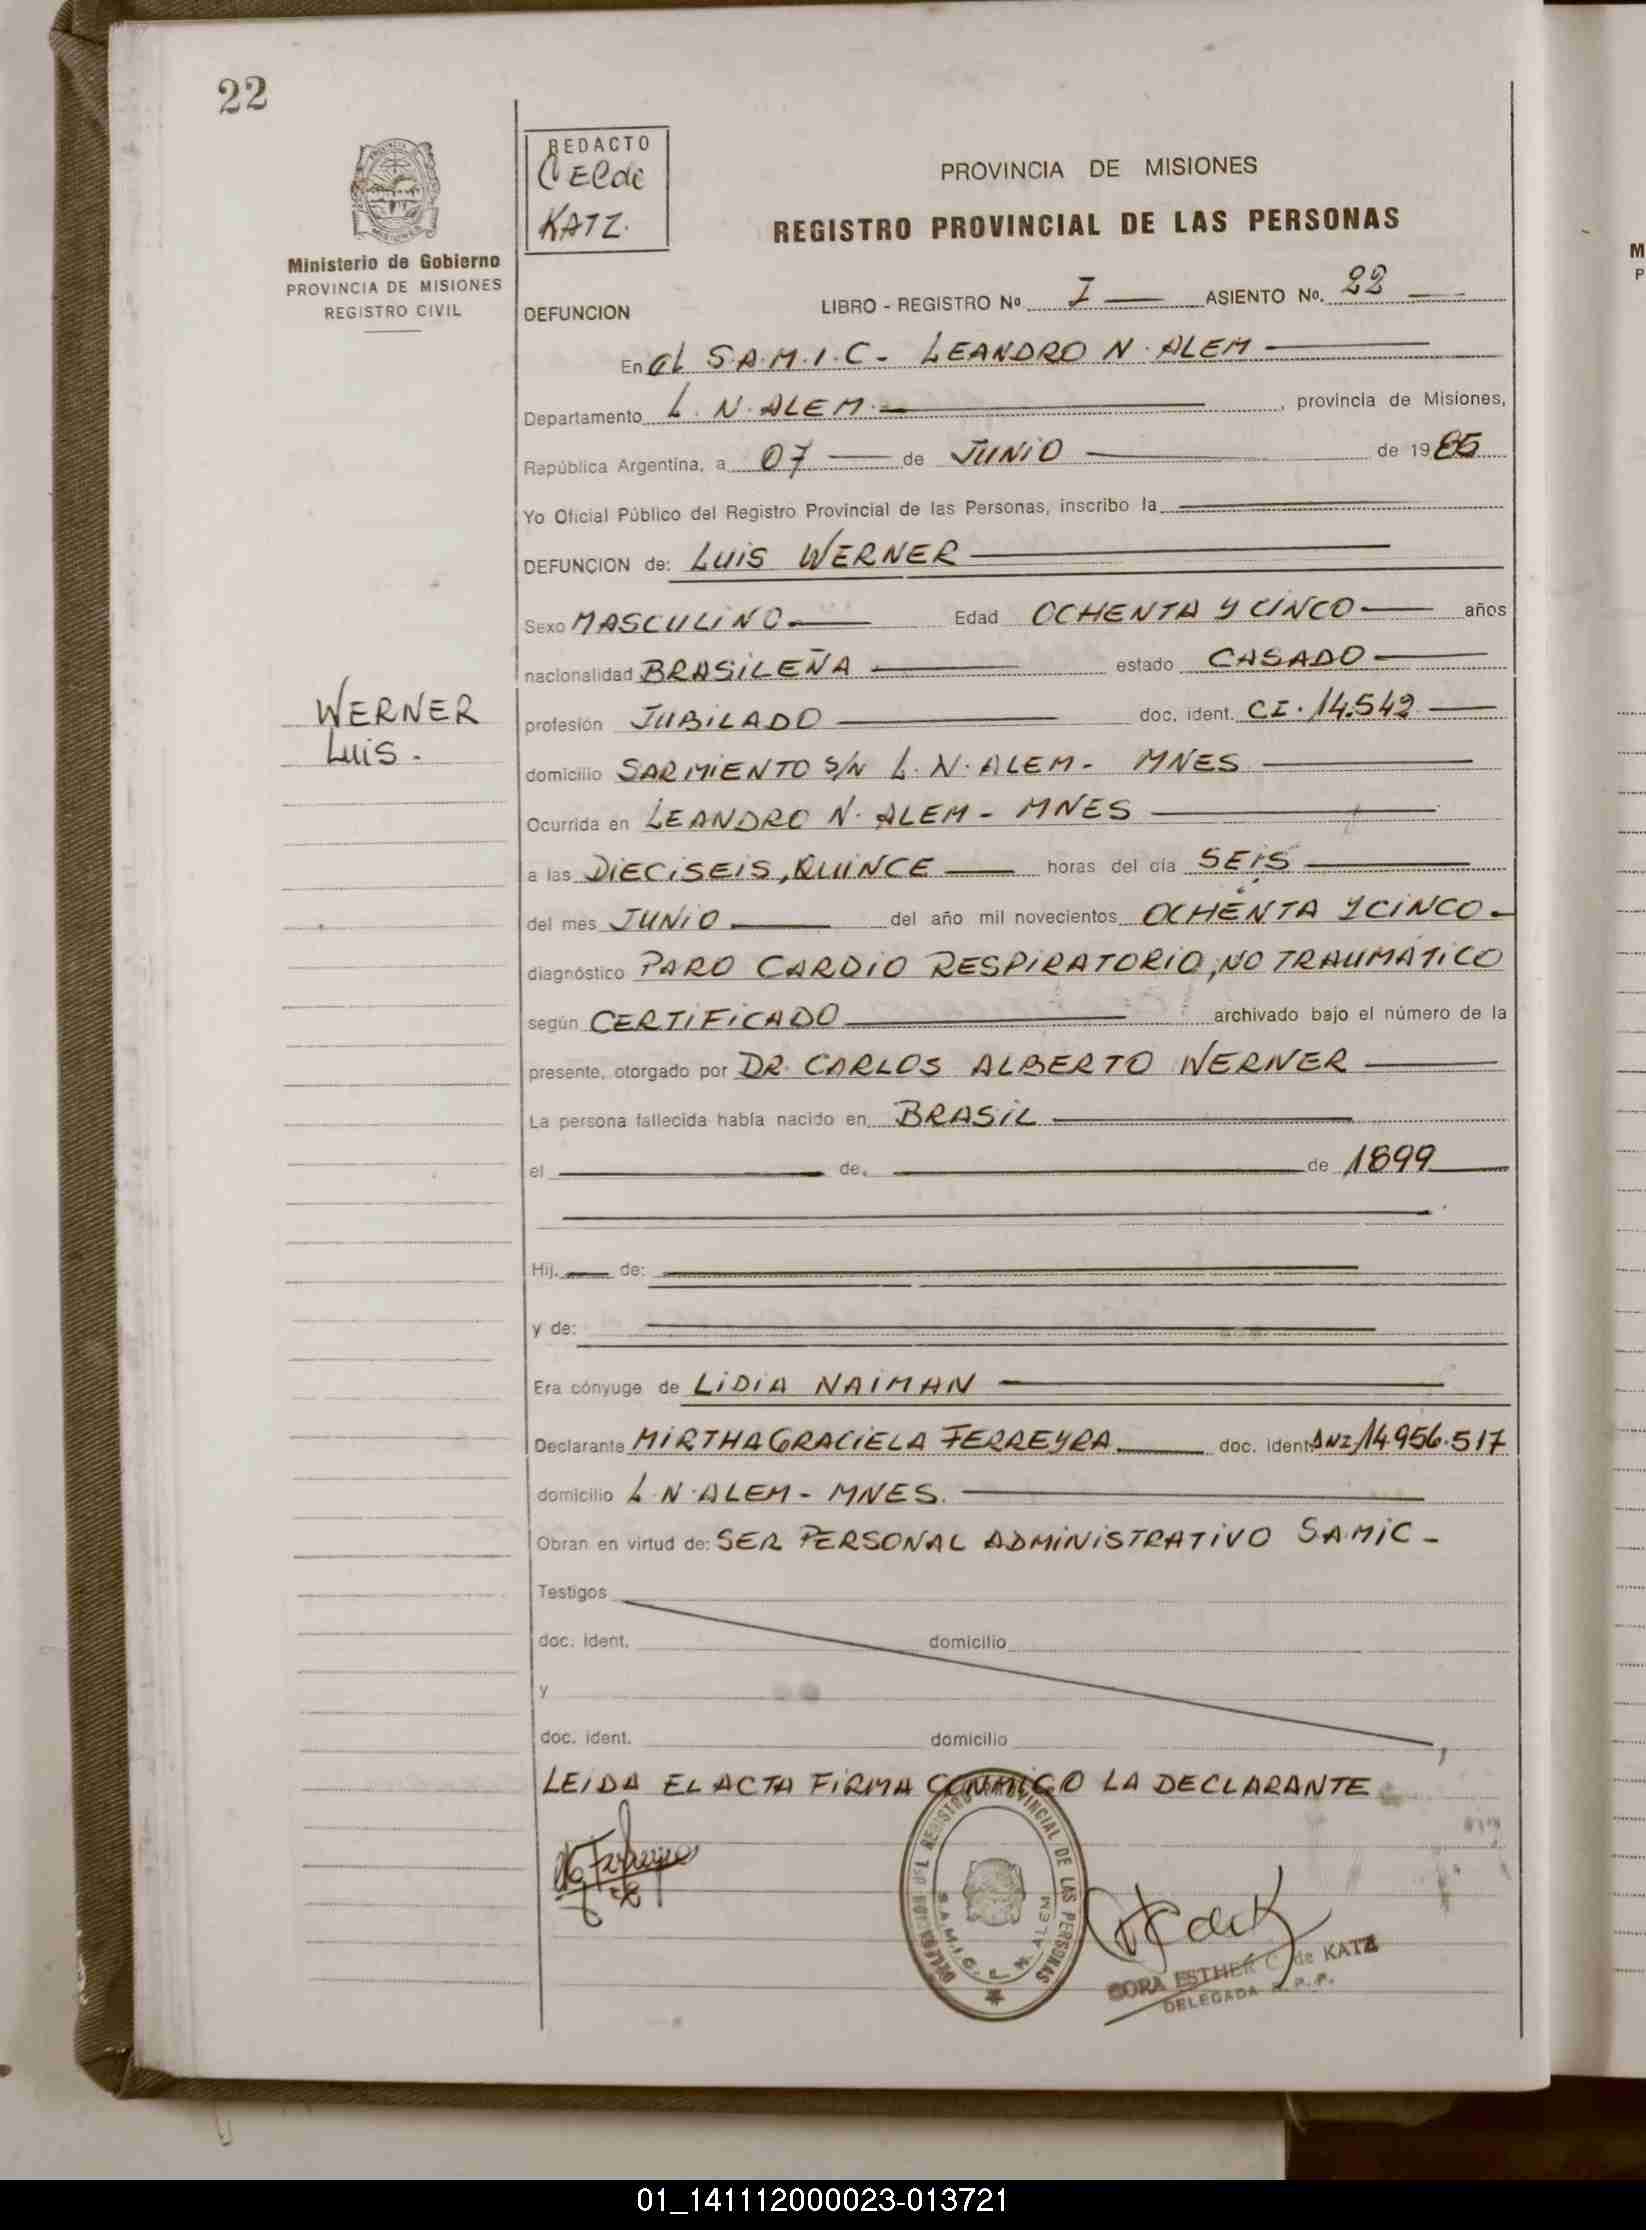 22
Ministerio de Gobierno
PROVINCIA DE MISIONES
REGISTRO CIVIL
REDACTO
C E C de
KATZ.
PROVINCIA DE MISIONES
REGISTRO PROVINCIAL DE LAS PERSONAS
DEFUNCION LIBRO - REGISTRO No I ASIENTO No. 22
En el S.A.M.I.C - LEANDRO N. ALEM
Departamento L. N. ALEM. , provincia de Misiones,
República Argentina, a 07 de JUNIO de 1985
Yo Oficial Público del Registro Provincial de las Personas, inscribo la
DEFUNCION de: LUIS WERNER
Sexo MASCULINO Edad OCHENTA Y CINCO años
nacionalidad BRASILEÑA estado CASADO
WERNER
LUIS.
profesión JUBILADO doc. ident. CI. 14.542
domicilio SARMIENTO S/N L. N. ALEM - MNES
Ocurrida en LEANDRO N. ALEM - MNES
a las DIECISEIS, QUINCE horas del día SEIS
del mes JUNIO del año mil novecientos OCHENTA Y CINCO -
diagnóstico PARO CARDIO RESPIRATORIO, NO TRAUMATICO
según CERTIFICADO archivado bajo el número de la
presente, otorgado por DR. CARLOS ALBERTO WERNER
La persona fallecida había nacido en BRASIL
el de de 1899
Hij. de:
y de:
Era cónyuge de LIDIA NAIMAN
Declarante MIRTHA GRACIELA FERREYRA doc. ident. DNI 14.956.517
domicilio L. N. ALEM - MNES.
Obran en virtud de: SER PERSONAL ADMINISTRATIVO SAMIC -
Testigos
doc. ident. domicilio
y
doc. ident. domicilio
LEIDA EL ACTA FIRMA CONMIGO LA DECLARANTE
DEL REGISTRO PROVINCIAL DE LAS PERSONAS
S.A.M.I.C. L. N. ALEM
CORA ESTHER C. de KATZ
DELEGADA R. P. P.
01_141112000023-013721